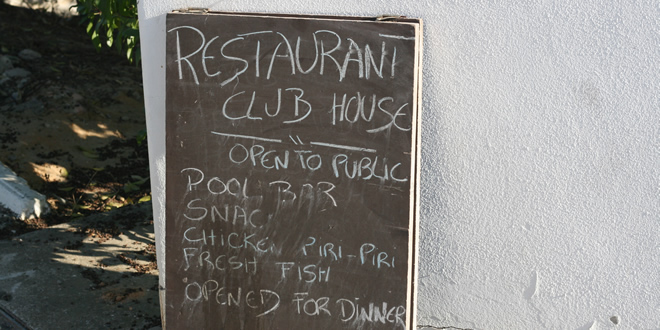 RESTAURANT
CLUB HOUSE
OPEN TO PUBLIC
POOL BAR
SNAC
CHICKEN PIRI-PIRI
FRESH FISH
OPENED FOR DINNER